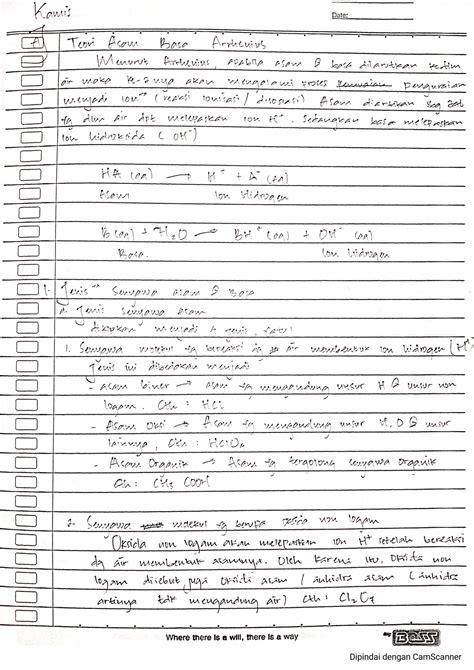 Kamis
Date:
A Teori Asam Basa Arrhenius
Menurut Arrhenius, apabila asam & basa dilarutkan kedlm
air maka ke-2nya akan mengalami proses penguraian
menjadi ion" (reaksi ionisasi / disosiasi) Asam diartikan sbg zat
yg dlm air dpt melepaskan ion H⁺. Sedangkan basa melepaskan
ion hidroksida (OH⁻)
HA (aq) → H⁺ + A⁻ (aq)
Asam Ion Hidrogen
B (aq) + H₂O → BH⁺ (aq) + OH⁻ (aq)
Basa. Ion hidrogen
1. Jenis" Senyawa asam & Basa
a. Jenis senyawa asam
menjadi jenis,
1. Senyawa molekul yg bereaksi dg air membentuk ion hidrogen (H⁺)
Jenis ini dibedakan menjadi
- asam biner → asam yg mengandung unsur H & unsur non
logam. Cth: HCl
- Asam Oksi → Asam yg mengandung unsur H, O & unsur
lainnya, Cth: HClO₄
- Asam Organik → Asam yg tergolong senyawa organik
Cth: CH₃ COOH
2. Senyawa molekul yg berupa oksida non logam
Oksida non logam akan melepaskan ion H⁺ setelah bereaksi
dg air membentuk asamnya. Oleh karena itu, Oksida non
logam disebut juga Oksida asam / anhidra asam (anhidra
artinya tdk mengandung air) Cth: Cl₂O₇
Where there is a will, there is a way
by BOSS
Dipindai dengan CamScanner